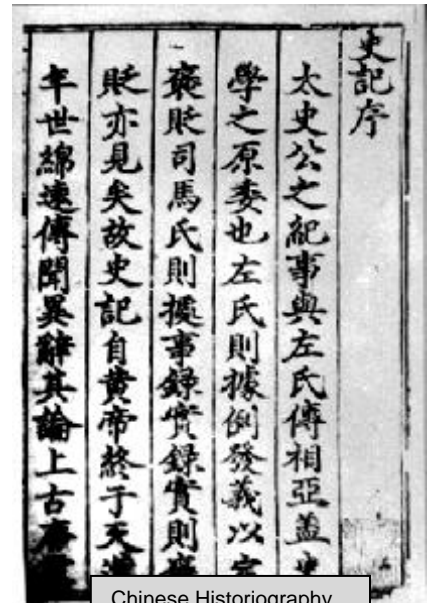 史記序
太史公之紀事與左氏傳相亞盖史
學之原委也左氏則據例發義以
褒貶司馬氏則據事録實録實則褒
貶亦見矣故史記自黄帝終于天漢
年世綿逺傳聞異辭其論上古
Chinese Historiography